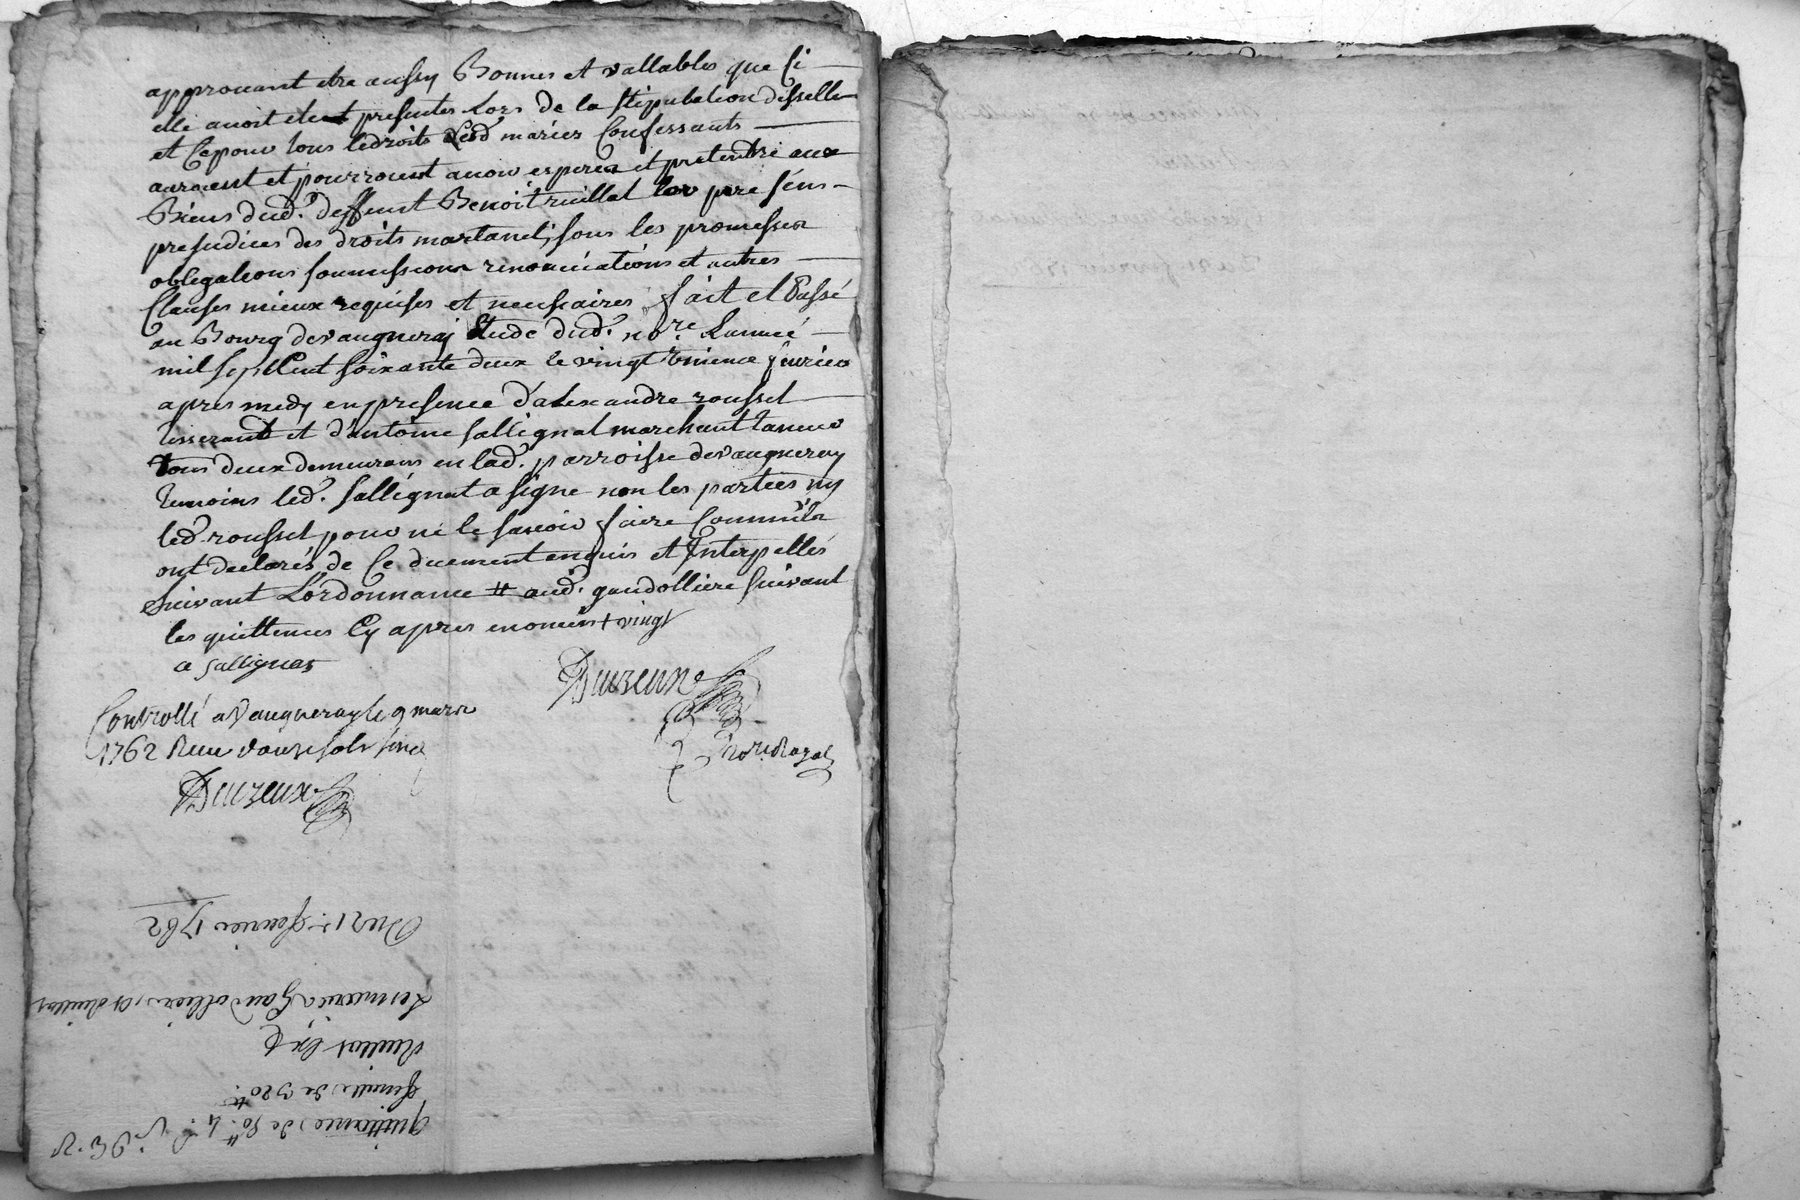 approuvant etre aussy Bonnes et vallables que si
elle avoit eté presentes Lors de la stipulation disselle
et Ce pour tous ledroits Lesd mariez Confessants
auroient et pourroient avoir esperer et pretendre aux
Biens dud. deffunt Benoit ruillat leur pere sens
prejudices des droits martanel, sous les promesses
obligations soumissions renonciations et autres
Clauses mieux requises et nessaires fait et Passé
au Bourg de vaugneray Etude dud. no.re Lannée
mil sept Cent soixante deux le vingt unieme fevrier
apres medy en presence d'alexandre roussel
tisserand et d'antoine sallignat marchant taneur
tous deux demeurans en lad. parroisse de vaugneray
temoins led. sallignat a signe non les parties ny
led roussel pour ne le savoir faire Comm'ils
ont declarés de Ce duement enquis et Interpellés
suivant L'ordonnance # aud. gaudolliere suivant
les quittences Cy apres + vingt
a sallignat
Duzeux
Controllé a Vaugneray le 9 mars
1762 Recu douze sols
no.re Royal
Duzeux
Du 21.e fevrier 1762
Les mariez Gaudolliere, et Ruillat
Ruillat
de 320.tt
quittance de 50.tt 4.s